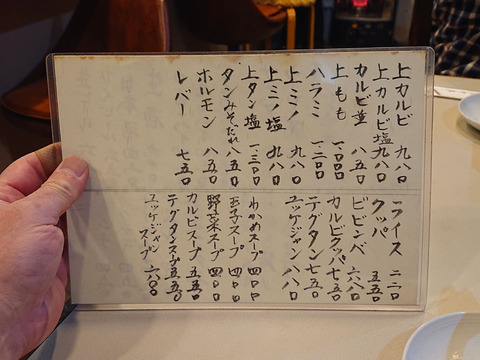 上カルビ 九八〇
上カルビ塩 九八〇
カルビ並 八五〇
上もも 一、〇〇〇
ハラミ 一、二〇〇
上ミノ 九八〇
上ミノ塩 九八〇
上タン塩 一、三〇〇
タンみそだれ 八五〇
ホルモン 八五〇
レバー 七五〇
ライス 二二〇
クッパ 五五〇
ビビンバ 六八〇
カルビクッパ 七五〇
テグタン 七五〇
ユッケジャン 八八〇
わかめスープ 四〇〇
玉子スープ 四〇〇
野菜スープ 四〇〇
カルビスープ 五五〇
テグタンスープ 五五〇
ユッケジャン
スープ 六〇〇